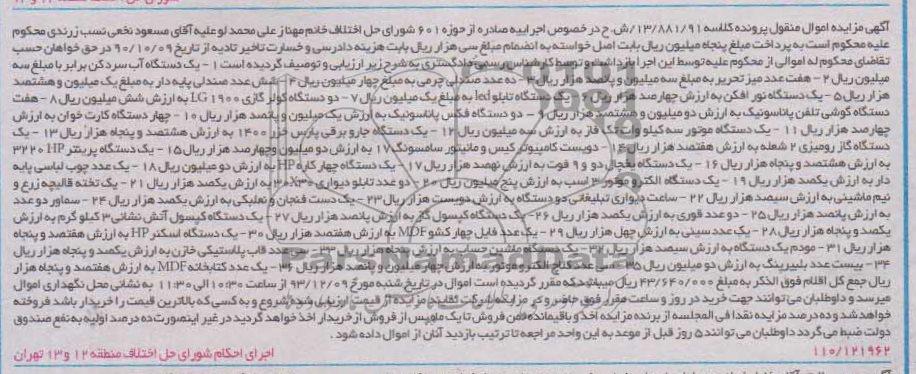 آگهی مزایده اموال منقول پرونده کلاسه ۱۳/۸۸۱/۹۱/ش.ح در خصوص اجراییه صادره از حوزه ۶۰۱ شورای حل اختلاف خانم مهناز علی محمد لو علیه آقای مسعود نخعی نسب زرندی محکوم
علیه محکوم است به پرداخت مبلغ پنجاه میلیون ریال بابت اصل خواسته به انضمام مبلغ سی هزار ریال بابت هزینه دادرسی و خسارت تاخیر تادیه از تاریخ ۹۰/۱۰/۰۹ در حق خواهان حسب
تقاضای محکوم له اموالی از محکوم علیه توسط این اجرا بازداشت و توسط کارشناس رسمی دادگستری به شرح زیر ارزیابی و توصیف گردیده است ۱ - یک دستگاه آب سرد کن برابر با مبلغ سه
میلیون ریال ۲ - هفت عدد میز تحریر به مبلغ سه میلیون و پانصد هزار ریال ۳ - ده عدد صندلی چرمی به مبلغ چهار میلیون ریال ۴ - شش عدد صندلی پایه دار به مبلغ یک میلیون و هشتصد
هزار ریال ۵ - یک دستگاه نور افکن به ارزش چهارصد هزار ریال ۶ - یک دستگاه تابلو led به مبلغ یک میلیون ریال ۷ - دو دستگاه کولر گازی LG ۱۹۰۰ به ارزش شش میلیون ریال ۸ - هفت
دستگاه گوشی تلفن پاناسونیک به ارزش دو میلیون و هشتصد هزار ریال ۹ - دو دستگاه فکس پاناسونیک به ارزش یک میلیون و پانصد هزار ریال ۱۰ - چهار دستگاه کارت خوان به ارزش
چهارصد هزار ریال ۱۱ - یک دستگاه موتور سه کیلو وات تک فاز به ارزش سه میلیون ریال ۱۲ - یک دستگاه جارو برقی پارس خزر ۱۴۰۰ به ارزش هشتصد و پنجاه هزار ریال ۱۳ - یک
دستگاه گاز رومیزی ۲ شعله به ارزش هفتصد هزار ریال ۱۴ - دویست کامپیوتر کیس و مانیتور سامسونگ ۱۷ به ارزش دو میلیون و چهارصد هزار ریال ۱۵ - یک دستگاه پرینتر HP ۳۲۲۰
به ارزش هشتصد و پنجاه هزار ریال ۱۶ - یک دستگاه یخچال دو و ۹ فوت به ارزش نهصد هزار ریال ۱۷ - یک دستگاه چهار کاره HP به ارزش دو میلیون ریال ۱۸ - یک عدد چوب لباسی پایه
دار به ارزش یکصد هزار ریال ۱۹ - یک دستگاه الکترو موتور ۳ اسب به ارزش پنج میلیون ریال ۲۰ - دو عدد تابلو دیواری ۳۰x۳۰ به ارزش یکصد هزار ریال ۲۱ - یک تخته قالیچه زرع و
نیم ماشینی به ارزش سیصد هزار ریال ۲۲ - ساعت دیواری تبلیغاتی دو دستگاه به ارزش دویست هزار ریال ۲۳ - یک دست فنجان و نعلبکی به ارزش یکصد هزار ریال ۲۴ - سماور دو عدد
به ارزش پانصد هزار ریال ۲۵ - دو عدد قوری به ارزش یکصد هزار ریال ۲۶ - یک دستگاه کپسول گاز به ارزش پانصد هزار ریال ۲۷ - یک دستگاه کپسول آتش نشانی ۳ کیلو گرم به ارزش
یکصد و پنجاه هزار ریال ۲۸ - یک عدد سینی به ارزش چهل هزار ریال ۲۹ - یک عدد فایل چهار کشو MDF به ارزش هفتصد هزار ریال ۳۰ - یک دستگاه اسکنر HP به ارزش هفتصد و پنجاه
هزار ریال ۳۱ - مودم یک دستگاه به ارزش سیصد هزار ریال ۳۲ - یک دستگاه ماشین حساب به ارزش پنجاه هزار ریال ۳۳ - عدد قاب پلاستیکی خازن به ارزش یکصد و پنجاه هزار ریال
۳۴ - بیست عدد بلبرینگ به ارزش دو میلیون ریال ۳۵ - سی عدد کلاج الکترو موتور به ارزش چهار میلیون و پانصد هزار ریال ۳۶ - یک عدد کتابخانه MDF به ارزش هفتصد و پنجاه هزار
ریال جمع کل اقلام فوق الذکر به مبلغ ۴۳/۶۴۰/۰۰۰ ریال میباشد که مقرر گردیده است اموال در تاریخ شنبه مورخ ۹۳/۱۲/۰۹ از ساعت ۱۰:۳۰ الی ۱۱:۳۰ به نشانی محل نگهداری اموال
میرسد و داوطلبان می توانند جهت خرید در روز و ساعت مقرر فوق حاضر و در مزایده شرکت نمایند مزایده از قیمت ارزیابی شده شروع و به کسی که بالاترین قیمت را خریدار باشد فروخته
خواهد شد و ده درصد مزایده نقدا فی المجلسه از برنده مزایده اخذ و باقیمانده ضمن فروش تا یک ماه پس از فروش از خریدار اخذ خواهد گردید در غیر اینصورت ده درصد اولیه به نفع صندوق
دولت ضبط می گردد داوطلبان می توانند ۵ روز قبل از موعد به این واحد مراجعه تا ترتیب بازدید آنان از اموال داده شود .
۱۱۰/۱۲۱۹۶۲ اجرای احکام شورای حل اختلاف منطقه ۱۲ و ۱۳ تهران
ParsNamadData